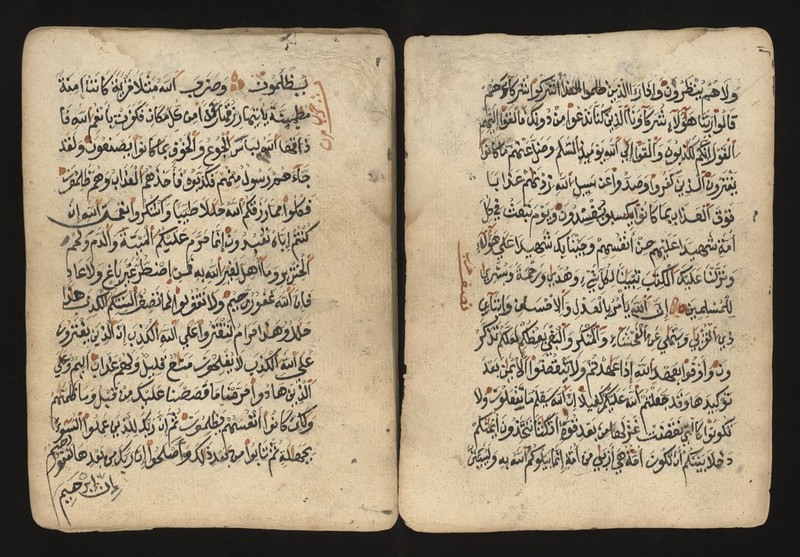 ولا هم ينظرون واذا را الذين ظلموا العذا اشركوا شركاؤهم
قالوا ربنا هؤلاء شركاؤنا الذين كنا ندعوا من دونك فالقوا اليهم
القول انكم لكذبون والقوا الى الله يوميذ السلم وضل عنهم ما كانوا
يفترون الذين كفروا وصدوا عن سبيل الله زدنهم عذابا
فوق العذاب بما كانوا يكسبو يفسدون ويوم نبعث في كل
امة شهيدا عليهم من انفسهم وجينا بك شهيدا على هؤلاء
ونزلنا عليك الكتب تبينا لكل شيء وهدى ورحمة وبشرى
للمسلمين ان الله يامر بالعدل والاحسن وايتاي
ذي القربى وينهى عن الفحشاء والمنكر والبغي يعظكم لعلكم تذكر
ون واوفوا بعهد الله اذا عهدتم ولا تنقضوا الايمن بعد
توكيدها وقد جعلتم الله عليكم كفيلا ان الله يعلم ما تفعلون ولا
تكونوا كالتي نقضت غزلها من بعد قوة انكثا تتخذون ايمنكم
دخلا بينكم ان تكون امة هي اربى من امة انما يبلوكم الله به وليبينن
نصف حزب
يظلمون وضرب الله مثلا قرية كانت امنة
مطمينة ياتيها رزقها رغدا من كل مكان فكفرت بانعم الله فا
ذاقها الله لباس الجوع والخوف بما كانوا يصنعون ولقد
جاءهم رسول منهم فكذبوه فاخذهم العذاب وهم ظلمون
فكلوا مما رزقكم الله حللا طيبا واشكروا نعمت الله ان
كنتم اياه تعبدون انما حرم عليكم الميتة والدم ولحم
الخنزير وما اهل لغير الله به فمن اضطر غير باغ ولا عاد
فان الله غفور رحيم ولا تقولوا لما تصف السنتكم الكذب هذا
حلل وهذا حرام لتفتروا على الله الكذب ان الذين يفترون
على الله الكذب لا يفلحون متع قليل ولهم عذاب اليم وعلى
الذين هادوا حرمنا ما قصصنا عليك من قبل وما ظلمنهم
ولكن كانوا انفسهم يظلمون ثم ان ربك للذين عملوا السوء
بجهلة ثم تابوا من بعد ذلك واصلحوا ان ربك من بعدها لغفور رحيم
ان ابرهيم